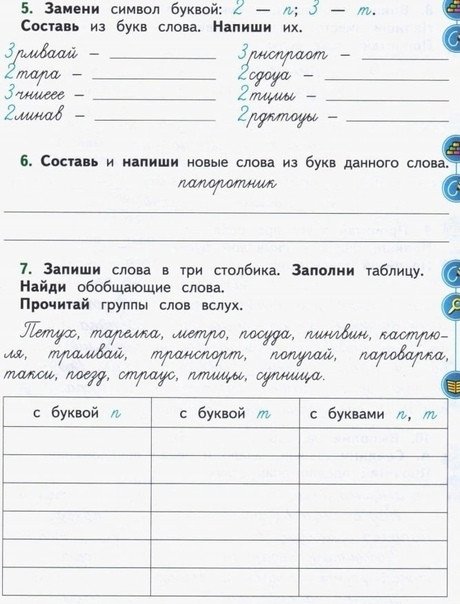 5. Замени символ буквой: 2 — п; 3 — т.
Составь из букв слова. Напиши их.
3рмваай — 3рнспраот —
2тара — 2сдоуа —
3чниеее — 2тциы —
2линав — 2рдктоуы —
6. Составь и напиши новые слова из букв данного слова.
папоротник
7. Запиши слова в три столбика. Заполни таблицу.
Найди обобщающие слова.
Прочитай группы слов вслух.
Петух, тарелка, метро, посуда, пингвин, кастрю-
ля, трамвай, транспорт, попугай, пароварка,
такси, поезд, страус, птицы, супница.
с буквой п с буквой т с буквами п, т